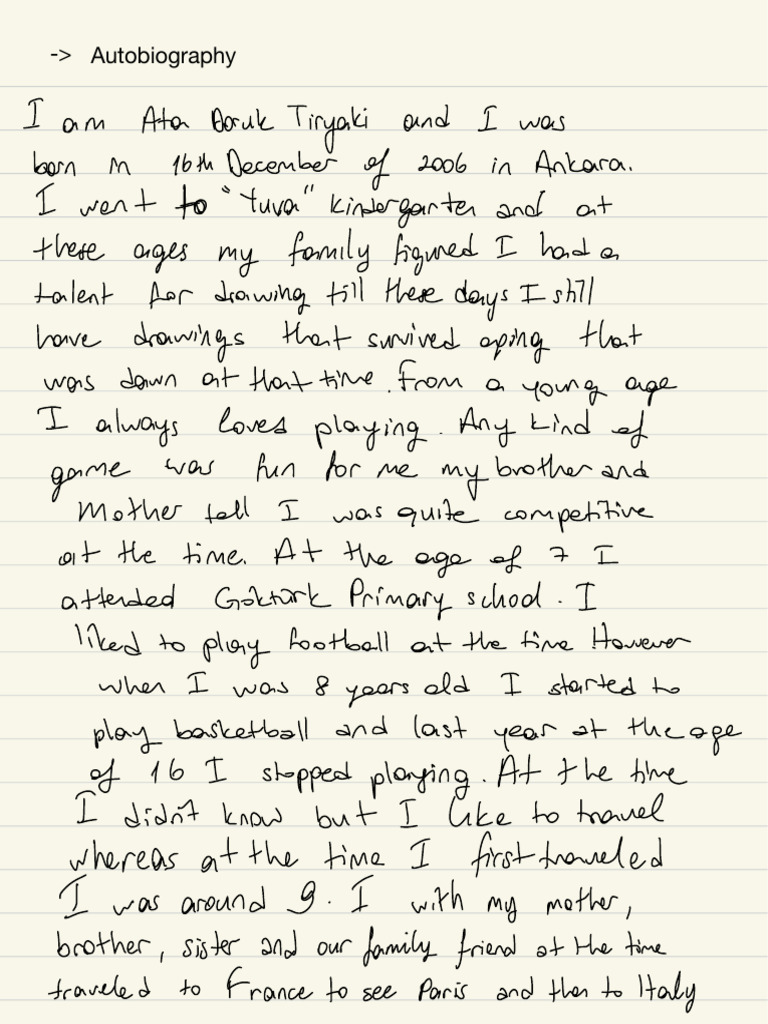 -> Autobiography
I am Ata Doruk Tiryaki and I was
born in 16th December of 2006 in Ankara.
I went to "Yuva" kindergarten and at
these ages my family figured I had a
talent for drawing till these days I still
have drawings that survived aping that
was dawn at that time. From a young age
I always loves playing. Any kind of
game was fun for me my brother and
Mother tell I was quite competitive
at the time. At the age of 7 I
attended Göktürk Primary school. I
liked to play football at the time However
when I was 8 years old I started to
play basketball and last year at the age
of 16 I stopped playing. At the time
I didn't know but I like to travel
whereas at the time I first traveled
I was around 9. I with my mother,
brother, sister and our family friend at the time
traveled to France to see Paris and then to Italy